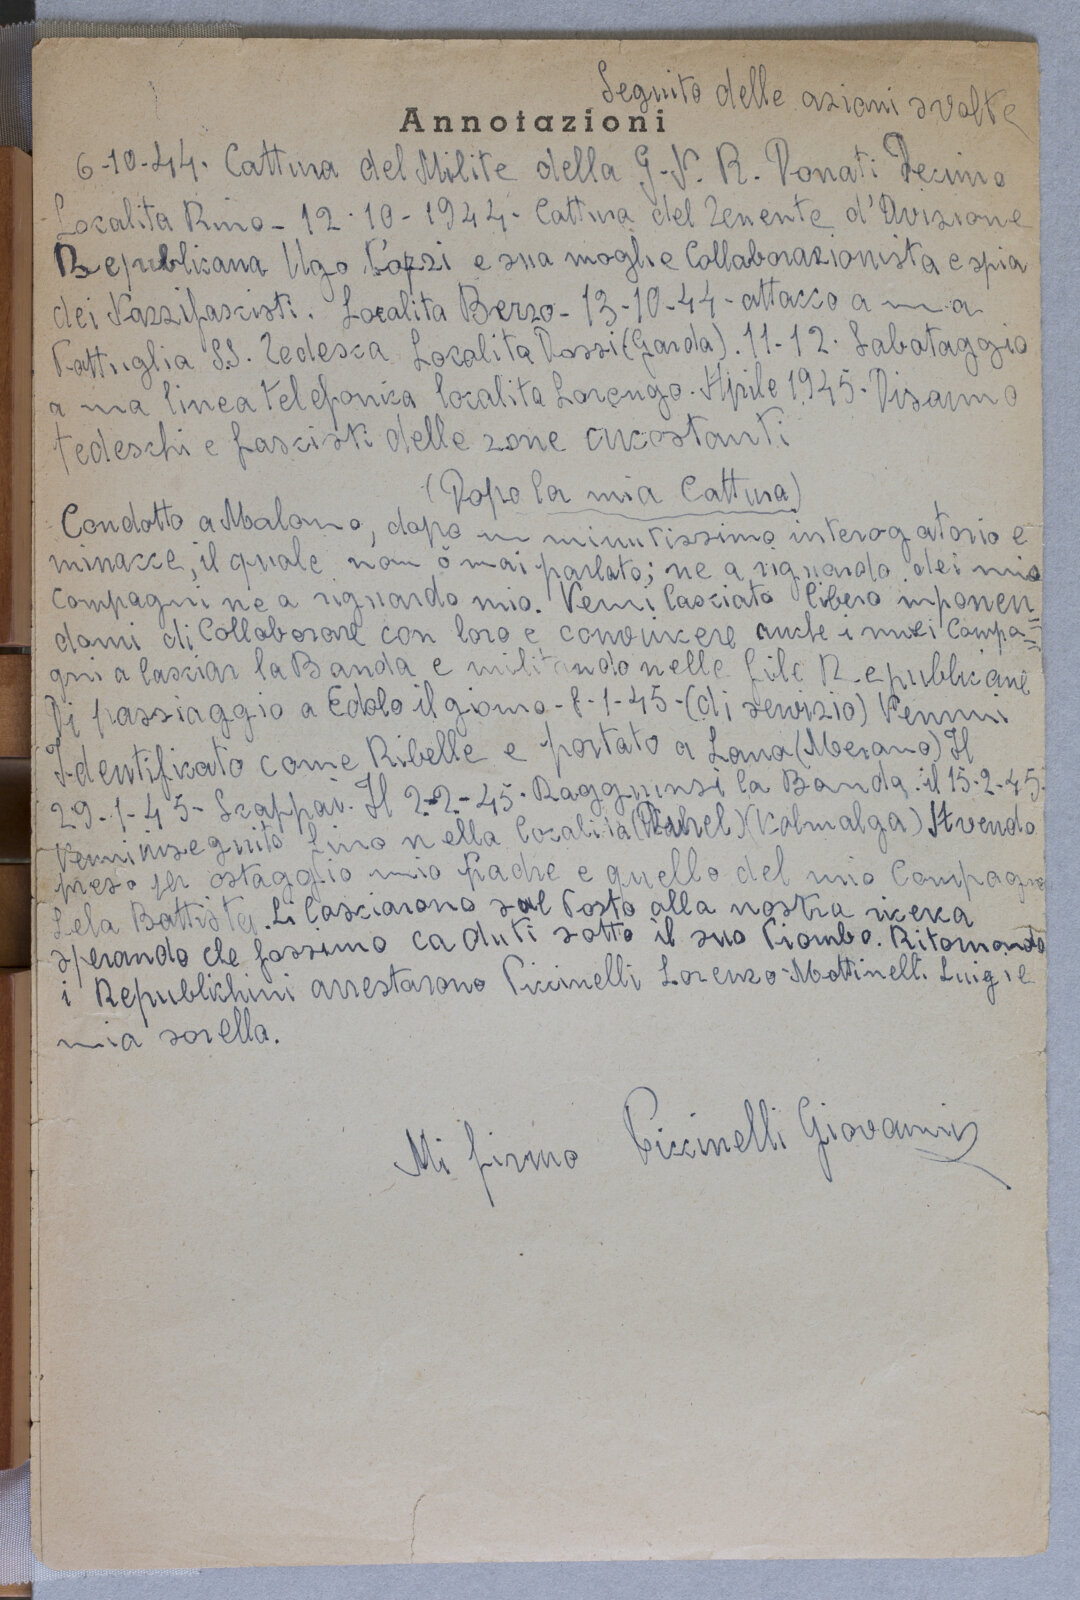 Seguito delle azioni svolte
Annotazioni
6-10-44. Cattura del Milite della G.N.R. Donati Decimo
Localita Rino - 12-10-1944- Cattura del Tenente d'Divisione
Republicana Ugo Pozzi e sua moglie Collaborazionista e spia
dei Nazzifascisti. Localita Berzo - 13-10-44 - attacco a una
Pattuglia S.S. Tedesca Localita Dossi (Garda). 11-12. Sabotaggio
a una linea telefonica localita Lorengo. Aprile 1945. Disarmo
tedeschi e fascisti delle zone circostanti
(Dopo la mia Cattura)
Condotto a Malonno, dopo un minutissimo interogatorio e
minacce, il quale non ò mai parlato; ne a riguardo dei miei
compagni ne a riguardo mio. Venni lasciato libero imponen=
domi di Collaborare con loro e convincere anche i miei Compa=
gni a lasciar la Banda e militando nelle file Republicane
Di passiaggio a Edolo il giorno - 8-1-45 - (di servizio) Venni
Identificato come Ribelle e portato a Lana (Merano) Il
29-1-45- Scappai. Il 2-2-45. Raggiunsi la Banda. il 15-2-45.
Venni inseguito fino nella localita (Valmalga) Avendo
preso per ostaggio mio Padre e quello del mio Compagno
Lela Battista. Li lasciarono sul Posto alla nostra ricerca
sperando che fossimo caduti sotto il suo Piombo. Ritornando
i Republichini arrestarono Piccinelli Lorenzo-Mottinelli Luigi e
mia sorella.
Mi firmo Piccinelli Giovanni